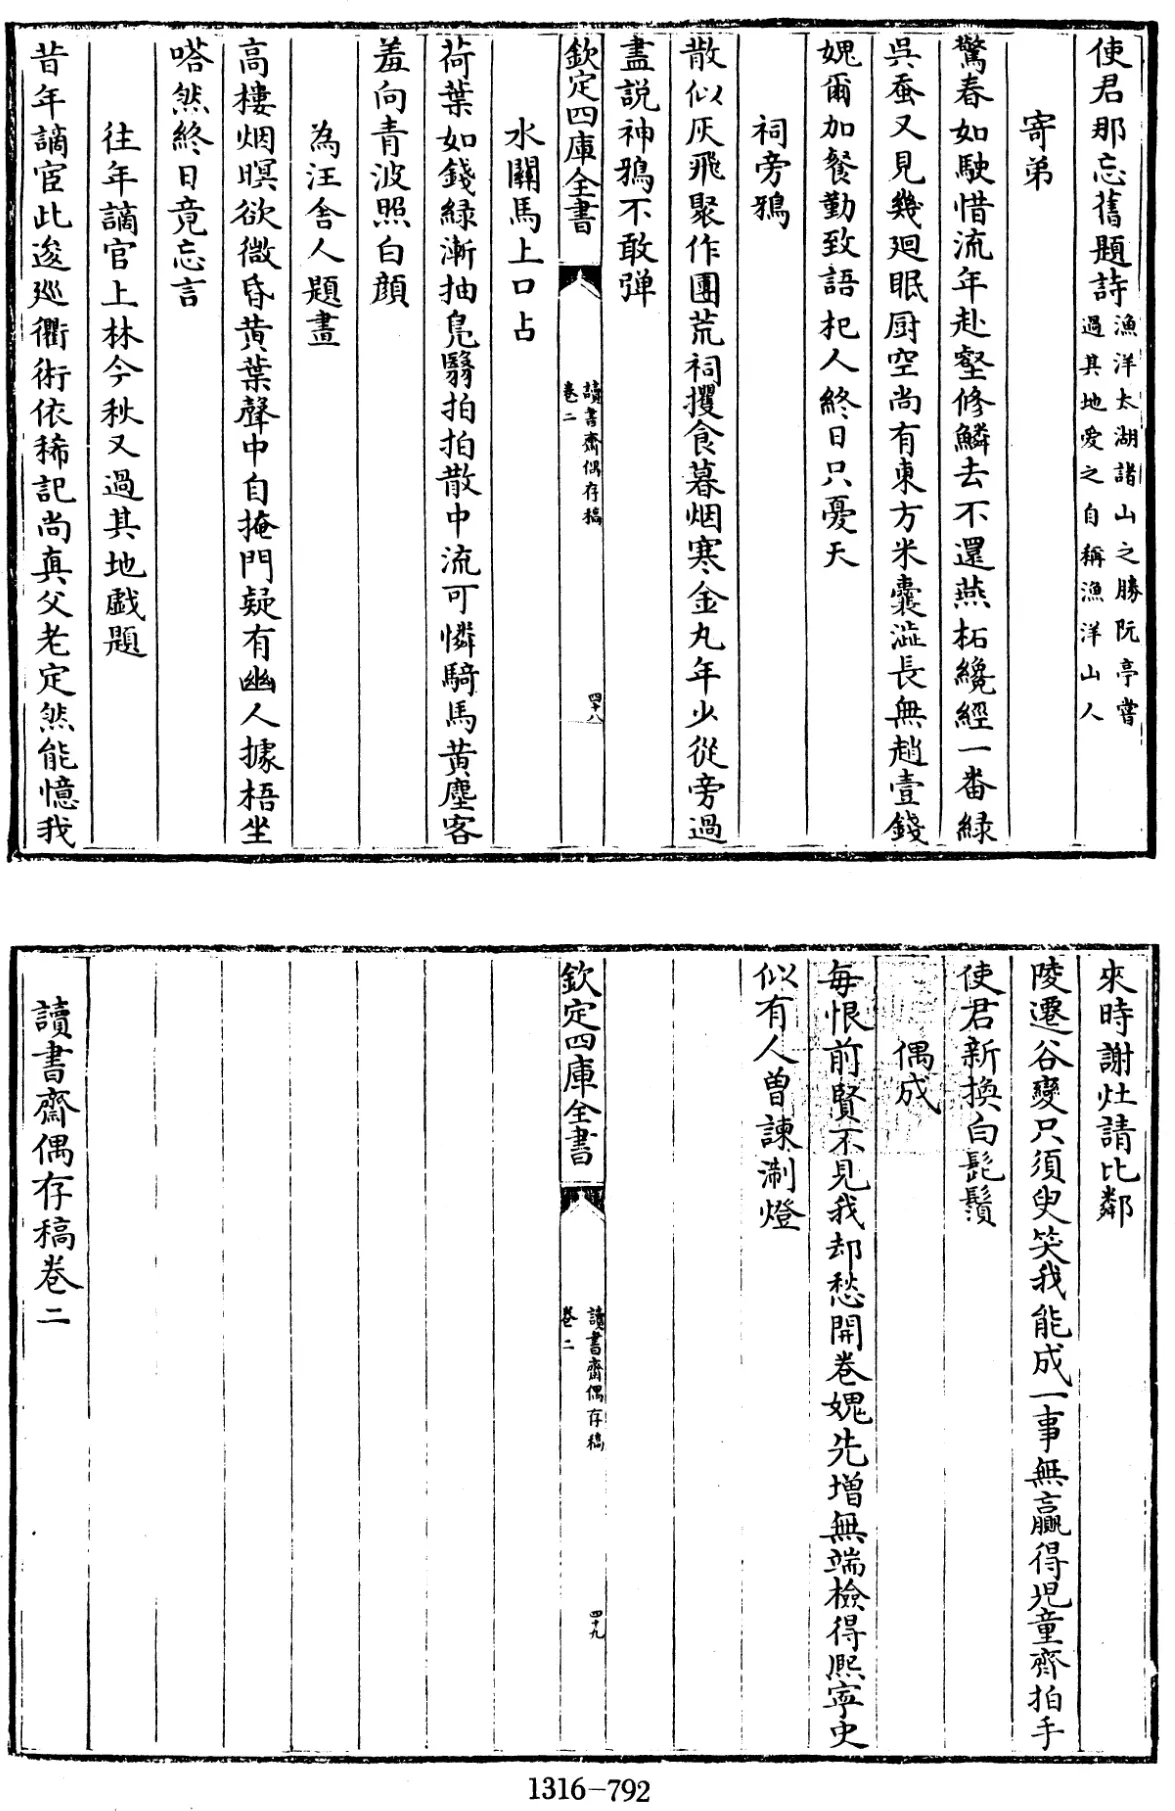 使君那忘舊題詩漁洋太湖諸山之勝阮亭嘗
過其地愛之自稱漁洋山人
寄弟
驚春如駛惜流年赴壑修鱗去不還燕柘纔經一番緑
呉蚕又見幾廻眠厨空尚有東方米囊澁長無趙壹錢
媿爾加餐勤致語杞人終日只憂天
祠旁鴉
散似灰飛聚作團荒祠攫食暮烟寒金丸年少從旁過
盡説神鴉不敢弾
欽定四庫全書
讀書齋偶存稿
卷二
四十八
水關馬上口占
荷葉如錢緑漸抽鳬翳拍拍散中流可憐騎馬黄塵客
羞向青波照白顔
為汪舍人題畫
高樓烟暝欲微昏黄葉聲中自掩門疑有幽人據梧坐
嗒然終日竟忘言
往年謫官上林今秋又過其地戲題
昔年謫宦此逡廵衢術依稀記尚真父老定然能憶我
來時謝灶請比鄰
陵遷谷變只須臾笑我能成一事無贏得児童齊拍手
使君新換白髭鬚
偶成
每恨前賢不見我却愁開卷媿先增無端檢得熈寧史
似有人曽諫淛燈
欽定四庫全書
讀書齋偶存稿
卷二
四十九
讀書齋偶存稿卷二
1316-792